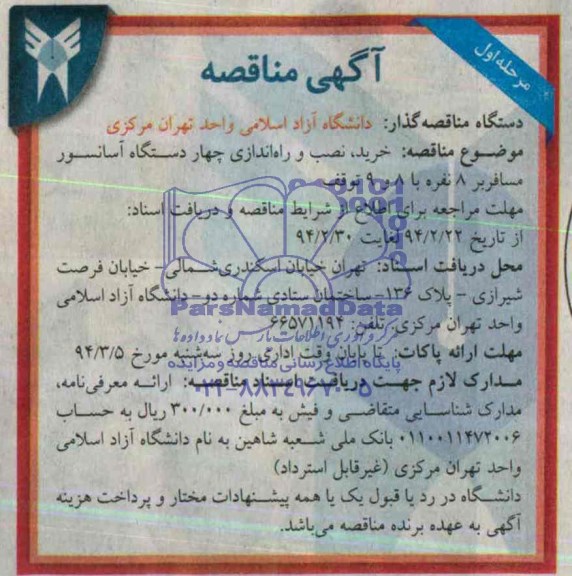 مرحله اول
آگهی مناقصه
دستگاه مناقصه‌گذار: دانشگاه آزاد اسلامی واحد تهران مرکزی
موضوع مناقصه: خرید، نصب و راه‌اندازی چهار دستگاه آسانسور
مسافربر ۸ نفره با ۸ و ۹ توقف
مهلت مراجعه برای اطلاع از شرایط مناقصه و دریافت اسناد:
از تاریخ ۹۴/۲/۲۲ لغایت ۹۴/۲/۳۰
محل دریافت اسناد: تهران خیابان اسکندری شمالی - خیابان فرصت
شیرازی - پلاک ۱۳۶- ساختمان ستادی شماره دو - دانشگاه آزاد اسلامی
ParsNamadData
واحد تهران مرکزی. تلفن: ۶۶۵۷۱۱۹۴
مرکز فرآوری اطلاعات پارس نماد داده ها
مهلت ارائه پاکات: تا پایان وقت اداری روز سه‌شنبه مورخ ۹۴/۳/۵
پایگاه اطلاع رسانی مناقصه و مزایده
مدارک لازم جهت دریافت اسناد مناقصه: ارائه معرفی‌نامه،
۰۲۱-۸۸۳۴۹۶۷۰-۵
مدارک شناسایی متقاضی و فیش به مبلغ ۳۰۰/۰۰۰ ریال به حساب
۰۱۱۰۰۱۱۴۷۲۰۰۶ بانک ملی شعبه شاهین به نام دانشگاه آزاد اسلامی
واحد تهران مرکزی (غیرقابل استرداد)
دانشگاه در رد یا قبول یک یا همه پیشنهادات مختار و پرداخت هزینه
آگهی به عهده برنده مناقصه می‌باشد.